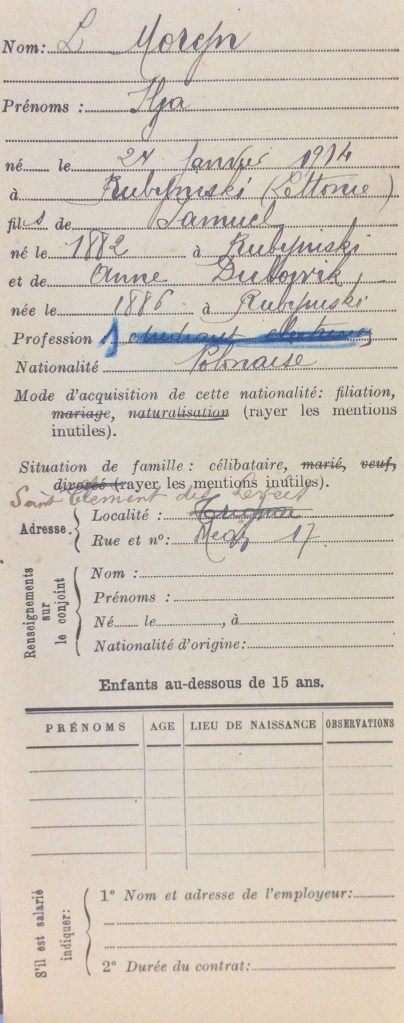 Nom: L Morejn
Prénoms : Ilja
né le 24 Janvier 1914
à Rubejniski (Lettonie)
fils de Samuel
né le 1882 à Rubejniski
et de Anne Dubojvik
née le 1886 à Rubejniski
Profession étudiant
Nationalité Polonaise
Mode d'acquisition de cette nationalité: filiation,
mariage, naturalisation (rayer les mentions
inutiles).
Situation de famille : célibataire, marié, veuf,
divorcé (rayer les mentions inutiles).
Saint Clément des Levées
Adresse. Localité : Trignon
Rue et n°: 17
Renseignements sur le conjoint
Nom :
Prénoms :
Né le , à
Nationalité d'origine:
Enfants au-dessous de 15 ans.
PRÉNOMS AGE LIEU DE NAISSANCE OBSERVATIONS
S'il est salarié indiquer:
1° Nom et adresse de l'employeur:
2° Durée du contrat: